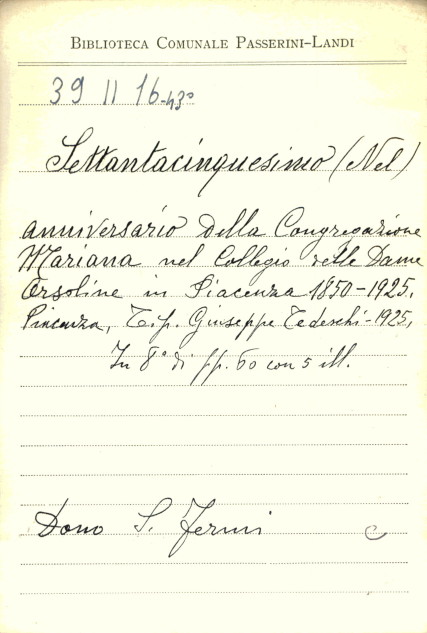 BIBLIOTECA COMUNALE PASSERINI-LANDI
39 II 16-43°
Settantacinquesimo (Nel)
anniversario della Congregazione
Mariana nel Collegio delle Dame
Orsoline in Piacenza 1850-1925.
Piacenza, Tip. Giuseppe Tedeschi-1925,
In 8° di pp. 60 con 5 ill.
Dono S. Fermi
C